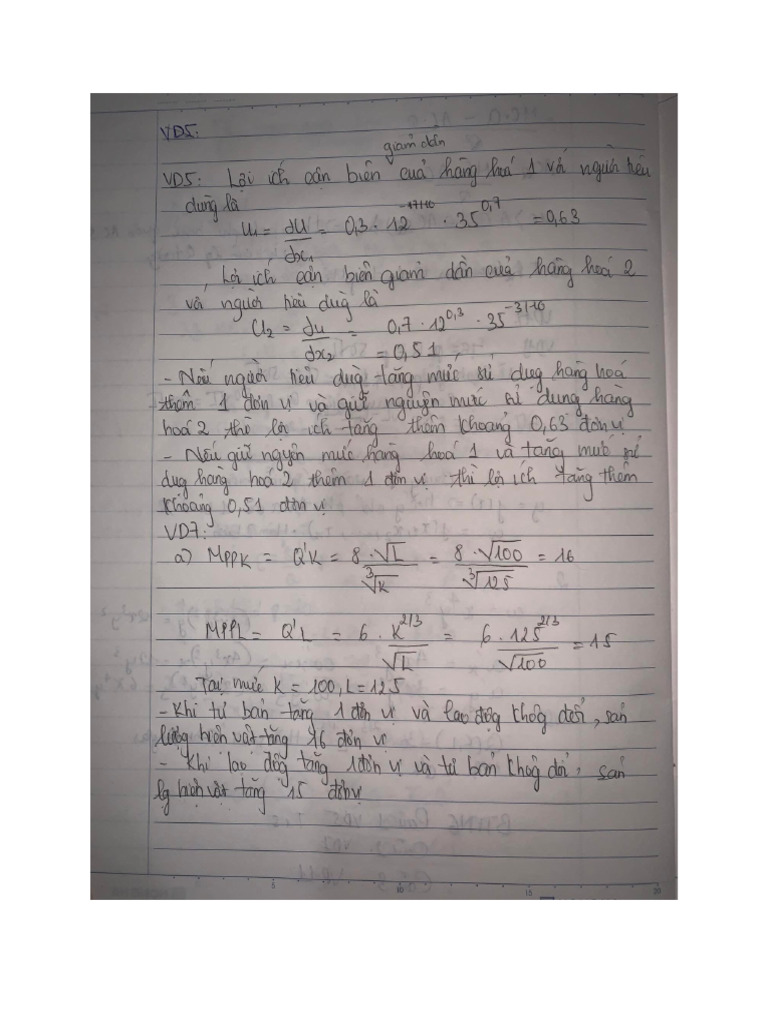 VD5:
giảm dần
VD5: Lợi ích cận biên của hàng hoá 1 với người tiêu
dùng là
U₁ = dU/dx₁ = 0,3 · 12^(-7/10) · 35^0,7 = 0,63
, Lợi ích cận biên giảm dần của hàng hoá 2
với người tiêu dùg là
U₂ = du/dx₂ = 0,7 · 12^0,3 · 35^(-3/10)
= 0,51
- Nếu người tiêu dùg tăng mức sử dụg hàng hoá
thêm 1 đơn vị và giữ nguyên mức sử dụng hàng
hoá 2 thì lợi ích tăng thêm khoảng 0,63 đơn vị
- Nếu giữ ngyên mức hàng hoá 1 và tăng mức sử
dụg hàng hoá 2 thêm 1 đơn vị thì lợi ích tăng thêm
khoảng 0,51 đơn vị
VD7:
a) MPPK = Q'K = 8·√L / ∛K = 8·√100 / ∛125 = 16
MPPL = Q'L = 6·K^(2/3) / √L = 6·125^(2/3) / √100 = 15
Tại mức K = 100, L = 125
- Khi tư bản tăng 1 đơn vị và lao độg khôg đổi, sản
lượng hiện vật tăng 16 đơn vị
- Khi lao động tăng 1 đơn vị và tư bản khôg đổi, sản
lg hiện vật tăng 15 đơn vị